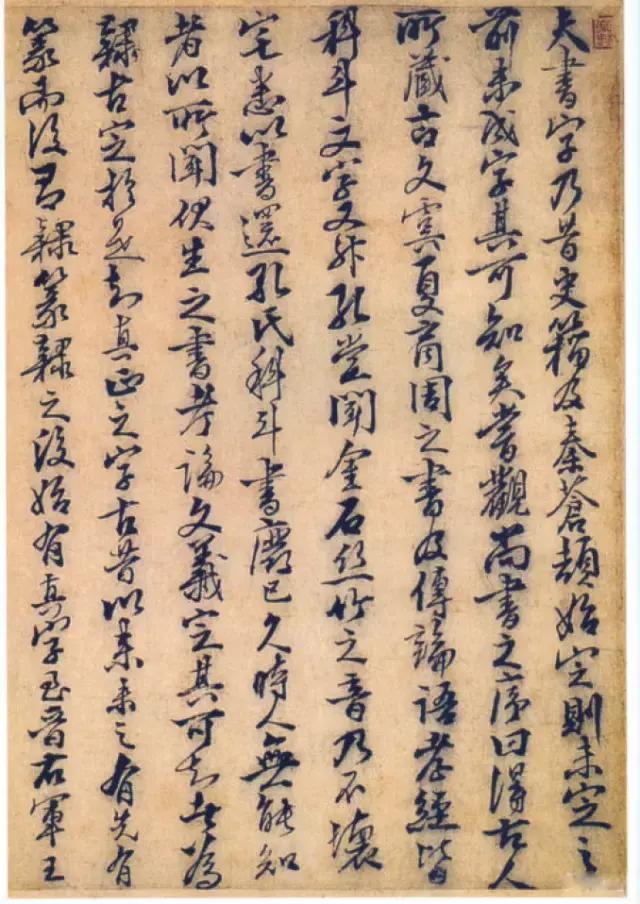 夫書字乃昔史籀及秦蒼頡始定則未定之
前未成字其可知矣嘗觀尚書之序曰得古人
所藏古文虞夏商周之書及傳論語孝經皆
科斗文字又升孔堂聞金石絲竹之音乃不壞
宅悉以書還孔氏科斗書廢已久時人無能知
者以所聞伏生之書考論文義定其可知者為
隸古定於是知真正之字古昔以來未之有先有
篆而後有隸篆隸之後始有真字至晉右軍王